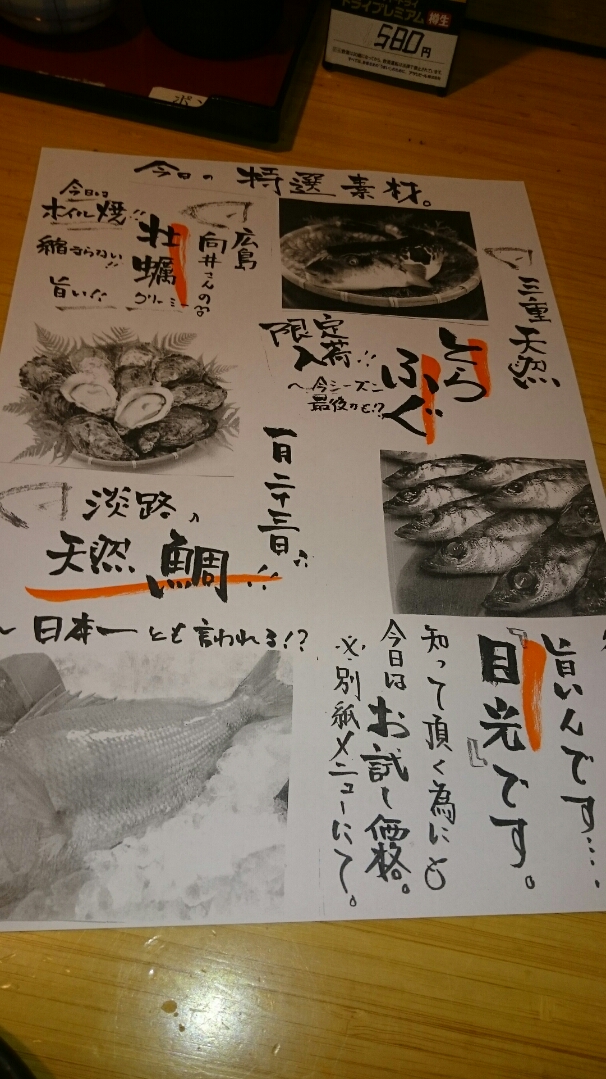 ドライプレミアム 樽生
580円
ポン
今日の特選素材。
三重天然
とらふぐ
限定入荷!!
~今シーズン
最後かも!?
広島
向井さんの
牡蠣
クリーミー
今日は
ホイル焼!!
縮まらない!!
旨い!!
一月二十三日
淡路の
天然鯛!!
~日本一とも言われる!?
旨いんです…
『目光』です。
知って頂く為にも
今日はお試し価格。
※別紙メニューにて。